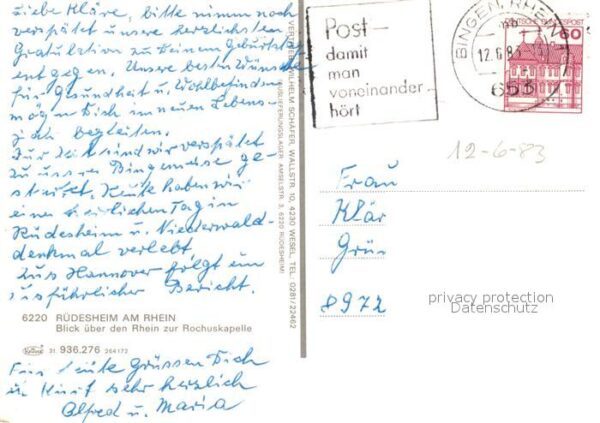 Liebe Kläre, bitte nimm noch
verspätet unsere herzlichsten
Gratulation zu Deinem Geburtstag
entgegen. Unsere besten Wünsche
für Gesundheit u. Wohlbefinden
mögen Dich im neuen Lebens-
jahr begleiten.
Zur Zeit sind wir verspätet
zu unsere Bingenreise ge-
startet. Heute haben wir
einen herrlichen Tag in
Rüdesheim u. Niederwald-
denkmal verlebt
Aus Hannover folgt ein
ausführlicher Bericht.
6220 RÜDESHEIM AM RHEIN
Blick über den Rhein zur Rochuskapelle
31 936.276 264172
Für heute grüssen Dich
u. Kurt sehr herzlich
Alfred u. Maria
WILHELM SCHÄFER, WALLSTR. 10, 4230 WESEL, TEL. 0281/22462
AUSLIEFERUNGSLAGER: AMSELSTR. 3, 6220 RÜDESHEIM
Post –
damit
man
voneinander
hört
BINGEN, RHEIN
12.6.83
653
DEUTSCHE BUNDESPOST
60
12-6-83
Frau
Klär
Grün
8972
privacy protection
Datenschutz